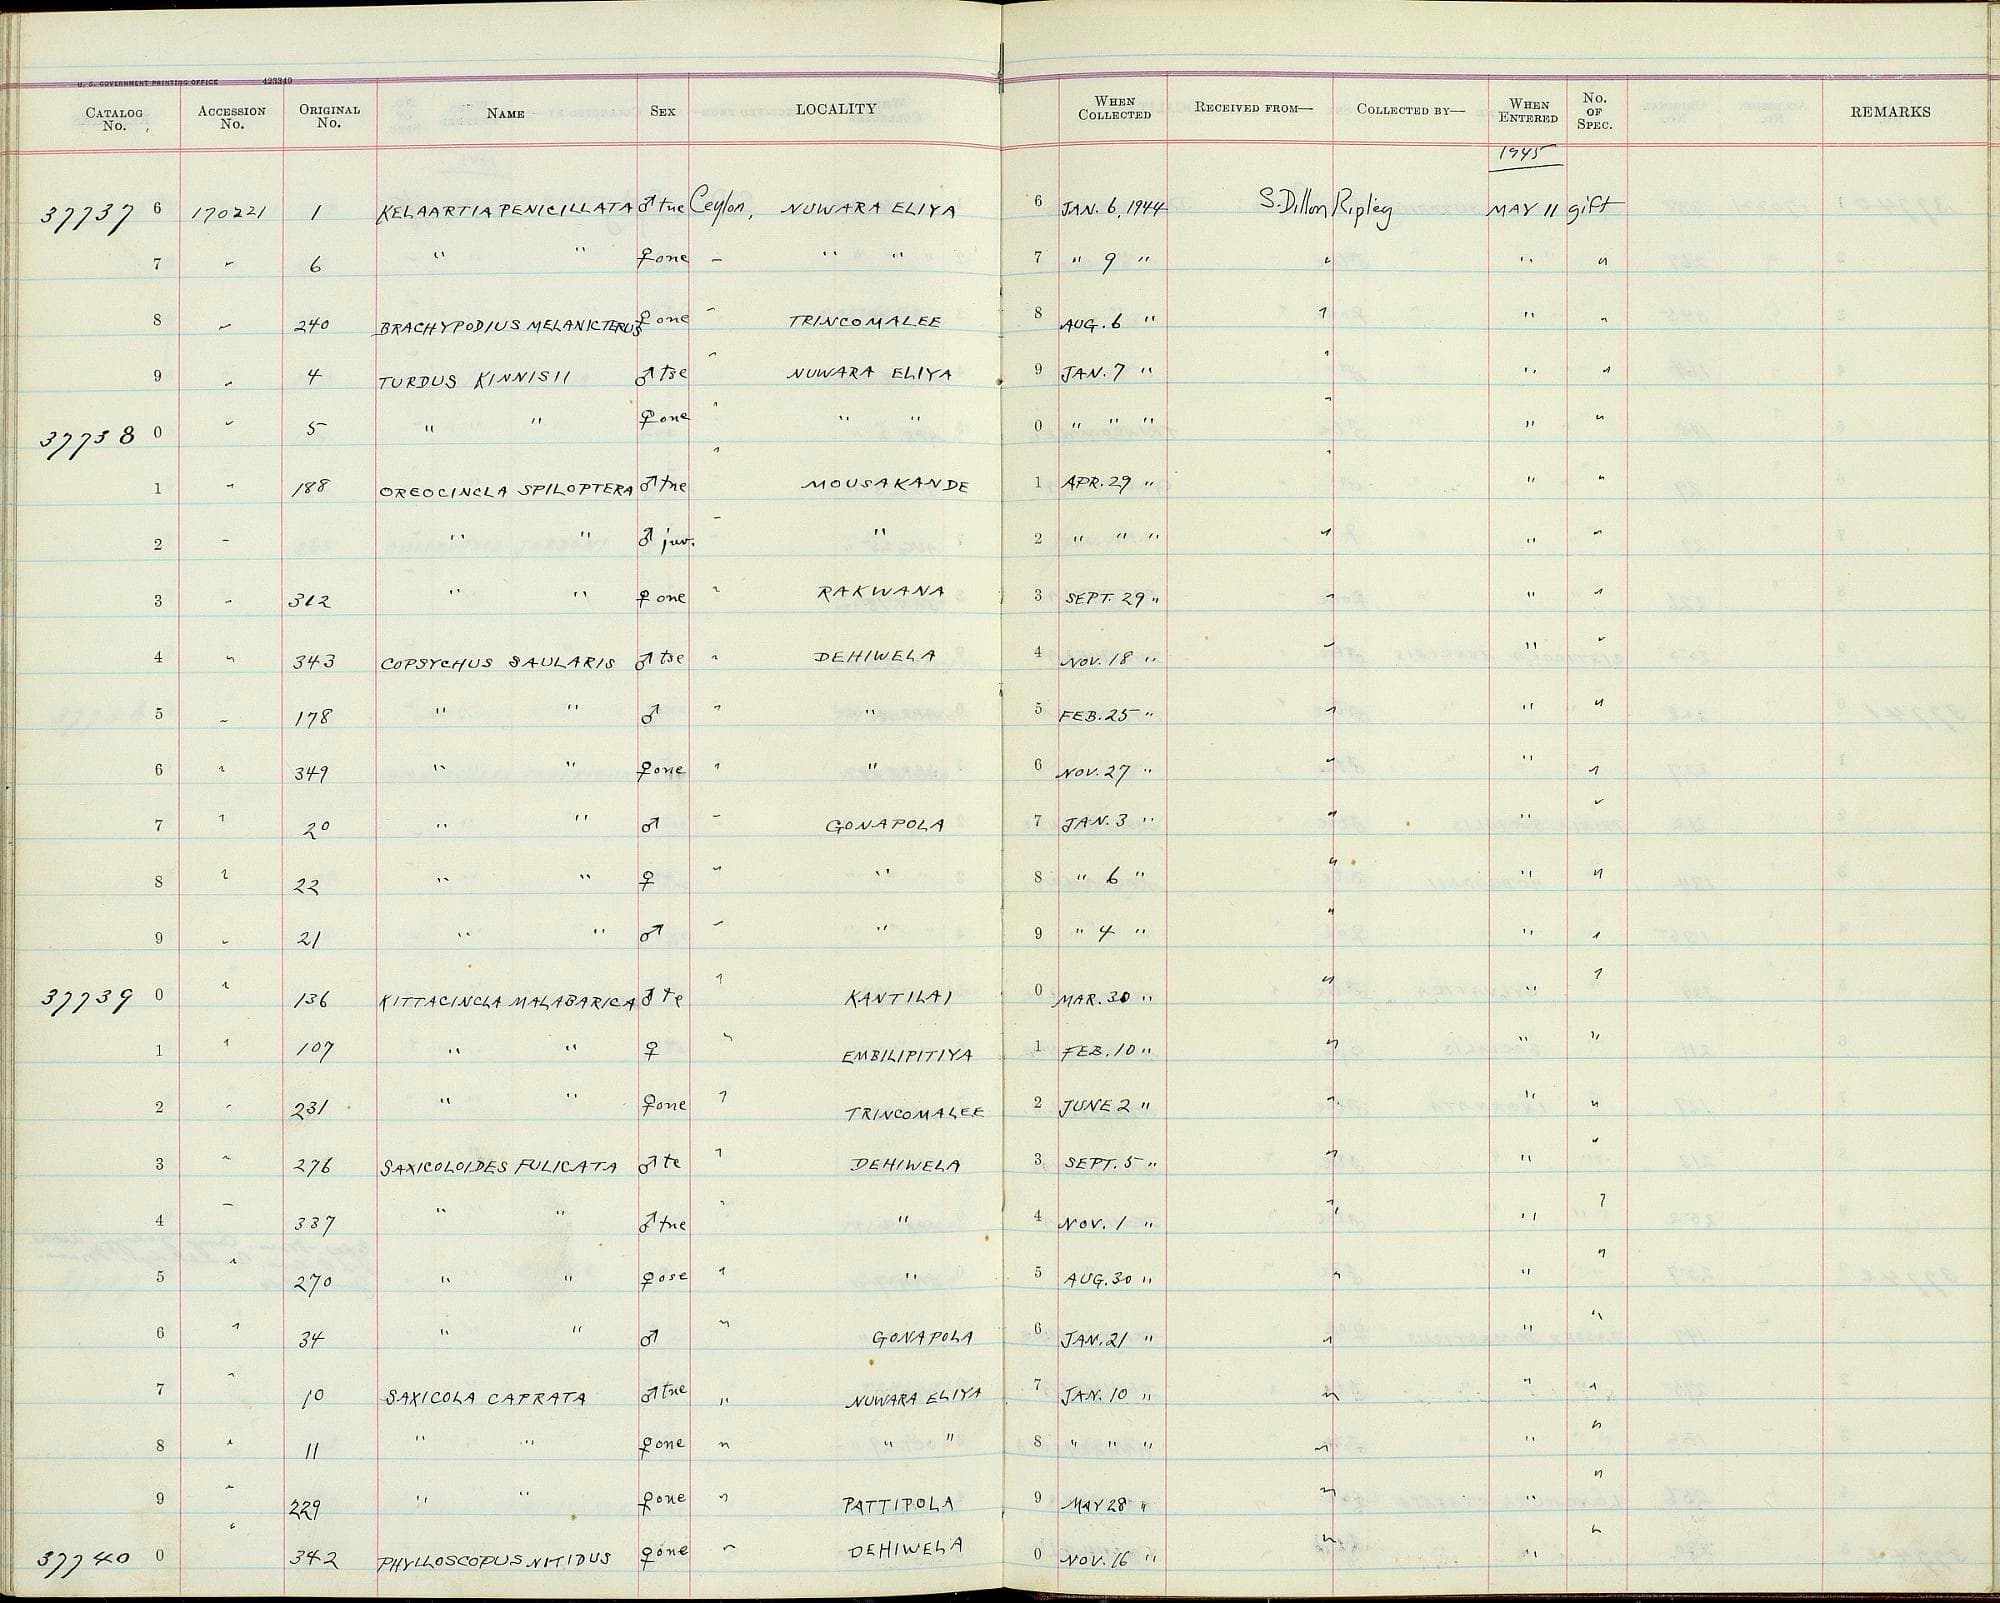 U. S. GOVERNMENT PRINTING OFFICE 423349
CATALOG No. ACCESSION No. ORIGINAL No. NAME SEX LOCALITY WHEN COLLECTED RECEIVED FROM— COLLECTED BY— WHEN ENTERED No. OF SPEC. REMARKS
1945
37737 6 170221 1 KELAARTIA PENICILLATA ♂ tne Ceylon, NUWARA ELIYA 6 JAN. 6, 1944 S. Dillon Ripley MAY 11 gift
7 " 6 " " ♀ one " " " 7 " 9 " " " "
8 " 240 BRACHYPODIUS MELANICTERUS ♀ one " TRINCOMALEE 8 AUG. 6 " " " "
9 " 4 TURDUS KINNISII ♂ tse " NUWARA ELIYA 9 JAN. 7 " " " "
37738 0 " 5 " " ♀ one " " " 0 " " " " " "
1 " 188 OREOCINCLA SPILOPTERA ♂ tne " MOUSAKANDE 1 APR. 29 " " " "
2 " " " ♂ juv. " " 2 " " " " " "
3 " 312 " " ♀ one " RAKWANA 3 SEPT. 29 " " " "
4 " 343 COPSYCHUS SAULARIS ♂ tse " DEHIWELA 4 NOV. 18 " " " "
5 " 178 " " ♂ " " 5 FEB. 25 " " " "
6 " 349 " " ♀ one " " 6 NOV. 27 " " " "
7 " 20 " " ♂ " GONAPOLA 7 JAN. 3 " " " "
8 " 22 " " ♀ " " 8 " 6 " " " "
9 " 21 " " ♂ " " 9 " 4 " " " "
37739 0 " 136 KITTACINCLA MALABARICA ♂ te " KANTILAI 0 MAR. 30 " " " "
1 " 107 " " ♀ " EMBILIPITIYA 1 FEB. 10 " " " "
2 " 231 " " ♀ one " TRINCOMALEE 2 JUNE 2 " " " "
3 " 276 SAXICOLOIDES FULICATA ♂ te " DEHIWELA 3 SEPT. 5 " " " "
4 " 337 " " ♂ tne " " 4 NOV. 1 " " " "
5 " 270 " " ♀ ose " " 5 AUG. 30 " " " "
6 " 34 " " ♂ " GONAPOLA 6 JAN. 21 " " " "
7 " 10 SAXICOLA CAPRATA ♂ tne " NUWARA ELIYA 7 JAN. 10 " " " "
8 " 11 " " ♀ one " " " 8 " " " " " "
9 " 229 " " ♀ one " PATTIPOLA 9 MAY 28 " " " "
37740 0 " 342 PHYLLOSCOPUS NITIDUS ♀ one " DEHIWELA 0 NOV. 16 " " " "